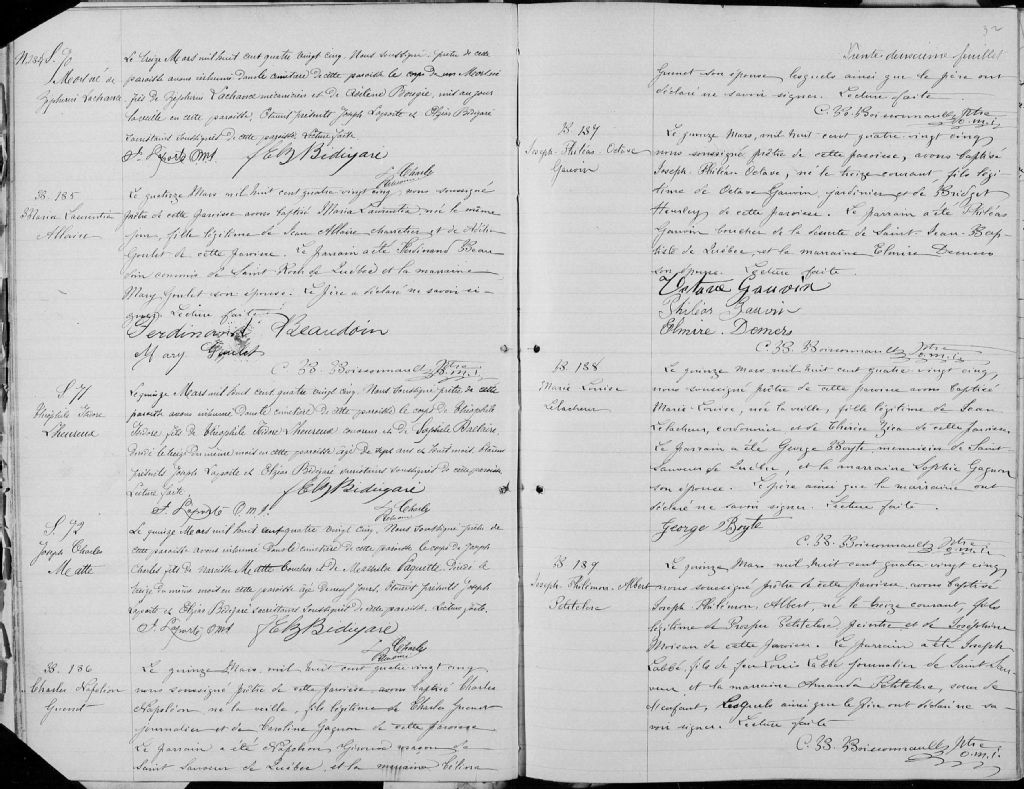 N. 204 S. 70
Mort né de
Zéphirin Lachance
Le treize Mars mil huit cent quatre vingt cinq. Nous soussigné prêtre de cette
paroisse avons inhumé dans le cimetière de cette paroisse le corps de un Mort né
fils de Zéphirin Lachance mécanicien et de Axiline Bougie, mis au jour
la veille en cette paroisse. Etaient présents Joseph Laporte et Elzéar Bédigaré
sacristains soussignés de cette paroisse. Lecture faite
J. Laporte O.M.I. J E B Bédigaré
Charles
B. 185
Maria Laurentia
Allaire
Le quatorze Mars mil huit cent quatre vingt cinq, nous soussigné
prêtre de cette paroisse avons baptisé Maria Laurentia, née le même
jour, fille légitime de Jean Allaire charretier et de
Goulet de cette paroisse. Le parrain a été Ferdinand Beau
doin commis de Saint Roch de Québec et la marraine
Mary Goulet son épouse. Le père a déclaré ne savoir si-
gner. Lecture faite.
Ferdinand Beaudoin
Mary Goulet
C. B. Boissonnault Ptre
o.m.i.
S. 71
Théophile Isidore
L'heureux
Le quinze Mars mil huit cent quatre vingt cinq. Nous soussigné prêtre de cette
paroisse avons inhumé dans le cimetière de cette paroisse le corps de Théophile
Isidore fils de Théophile Isidore L'heureux et de Sophile Baclaire,
décédé le treize du même mois en cette paroisse âgé de sept ans et huit mois. Etaient
présents Joseph Laporte et Elzéar Bédigaré sacristains soussignés de cette paroisse.
Lecture faite. J E B Bédigaré
J. Laporte O.M.I. Charles
S. 72
Joseph Charles
Matte
Le quinze Mars mil huit cent quatre vingt cinq. Nous soussigné prêtre de
cette paroisse avons inhumé dans le cimetière de cette paroisse le corps de Joseph
Charles fils de Narcisse Matte boucher et de Paquette décédé le
treize du même mois en cette paroisse âgé de neuf jours. Etaient présents Joseph
Laporte et Elzéar Bédigaré sacristains soussignés de cette paroisse. Lecture faite.
J. Laporte O.M.I. J E B Bédigaré
Charles
B. 186
Charles Napoléon
Guenet
Le quinze Mars, mil huit cent quatre vingt cinq
nous soussigné prêtre de cette paroisse avons baptisé Charles
Napoléon né la veille, fils légitime de Charles Guenet
journalier et de Caroline Gagnon de cette paroisse
Le parrain a été Napoléon Giroux maçon de
Saint Sauveur de Québec, et la marraine Célina
32
Trente deuxième feuillet
Guenet son épouse lesquels ainsi que le père ont
déclaré ne savoir signer. Lecture faite.
C. B. Boissonnault Ptre
o.m.i.
B. 187
Joseph Philéas Octave
Gauvin
Le quinze Mars, mil huit cent quatre vingt cinq,
nous soussigné prêtre de cette paroisse, avons baptisé
Joseph Philéas Octave, né le treize courant, fils légi-
time de Octave Gauvin jardinier et de Bridget
Hensley de cette paroisse. Le parrain a été Philéas
Gauvin boucher de la de Saint-Jean-Bap-
tiste de Québec, et la marraine Elmire Demers
son épouse. Lecture faite.
Octave Gauvin
Philéas Gauvin
Elmire Demers
C. B. Boissonnault Ptre
o.m.i.
B. 188
Marie Louise
Lelacheur
Le quinze Mars, mil huit cent quatre vingt cinq,
nous soussigné prêtre de cette paroisse avons baptisé
Marie Louise, née la veille, fille légitime de Jean
Lelacheur, cordonnier et de Thérèse de cette paroisse
Le parrain a été George Boyte menuisier de Saint-
Sauveur de Québec, et la marraine Sophie Gagnon
son épouse. Le père ainsi que la marraine ont
déclaré ne savoir signer. Lecture faite.
George Boyte
C. B. Boissonnault Ptre
o.m.i.
B. 189
Joseph Philémon Albert
Petitclerc
Le quinze Mars, mil huit cent quatre vingt cinq,
nous soussigné prêtre de cette paroisse avons baptisé
Joseph Philémon Albert, né le treize courant, fils
légitime de Prosper Petitclerc, peintre et de Joséphine
Moisan de cette paroisse. Le parrain a été Joseph
Labbé, fils de feu Louis Labbé journalier de Saint Sau-
veur, et la marraine Amanda Petitclerc, soeur de
l'enfant, lesquels ainsi que le père ont déclaré ne sa-
voir signer. Lecture faite
C. B. Boissonnault Ptre
o.m.i.